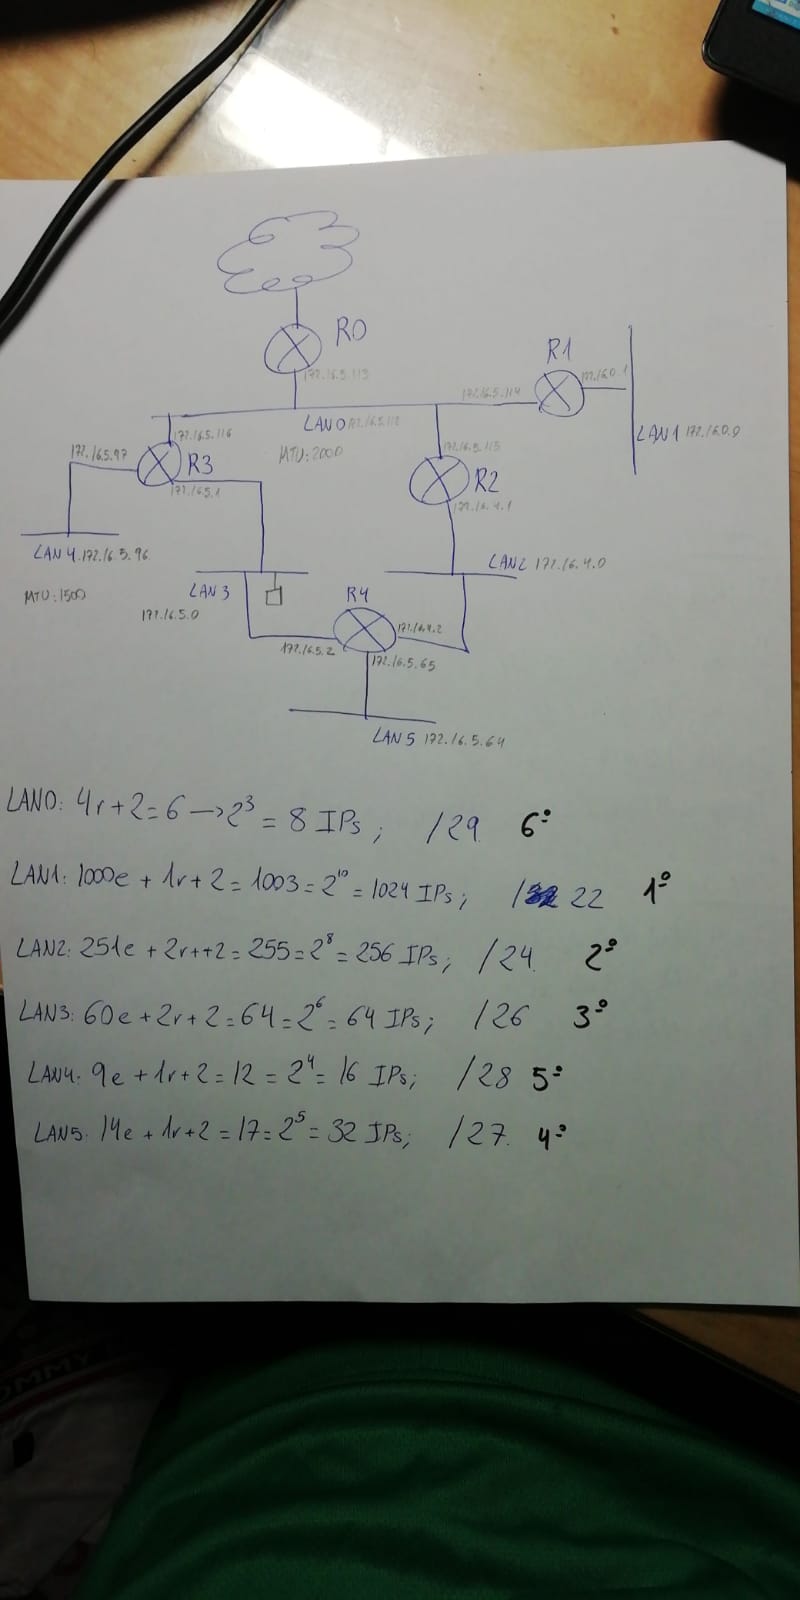 R0
172.16.5.113
R1
172.16.0.1
172.16.5.114
LAN0 172.16.5.112
LAN1 172.16.0.0
172.16.5.116
172.16.5.115
MTU: 2000
172.16.5.97
R3
172.16.5.1
R2
172.16.4.1
LAN4 172.16.5.96
LAN2 172.16.4.0
MTU: 1500
LAN3
R4
172.16.5.0
172.16.4.2
172.16.5.2
172.16.5.65
LAN5 172.16.5.64
LAN0: 4r+2=6 → 2³ = 8 IPs; /29 6º
LAN1: 1000e + 1r+2 = 1003 = 2¹⁰ = 1024 IPs; / 22 1º
LAN2: 251e + 2r++2 = 255 = 2⁸ = 256 IPs; /24. 2º
LAN3: 60e + 2r + 2 = 64 = 2⁶ = 64 IPs; /26 3º
LAN4: 9e + 1r+2 = 12 = 2⁴ = 16 IPs; /28 5º
LAN5: 14e + 1r+2 = 17 = 2⁵ = 32 IPs; /27. 4º
OMMY